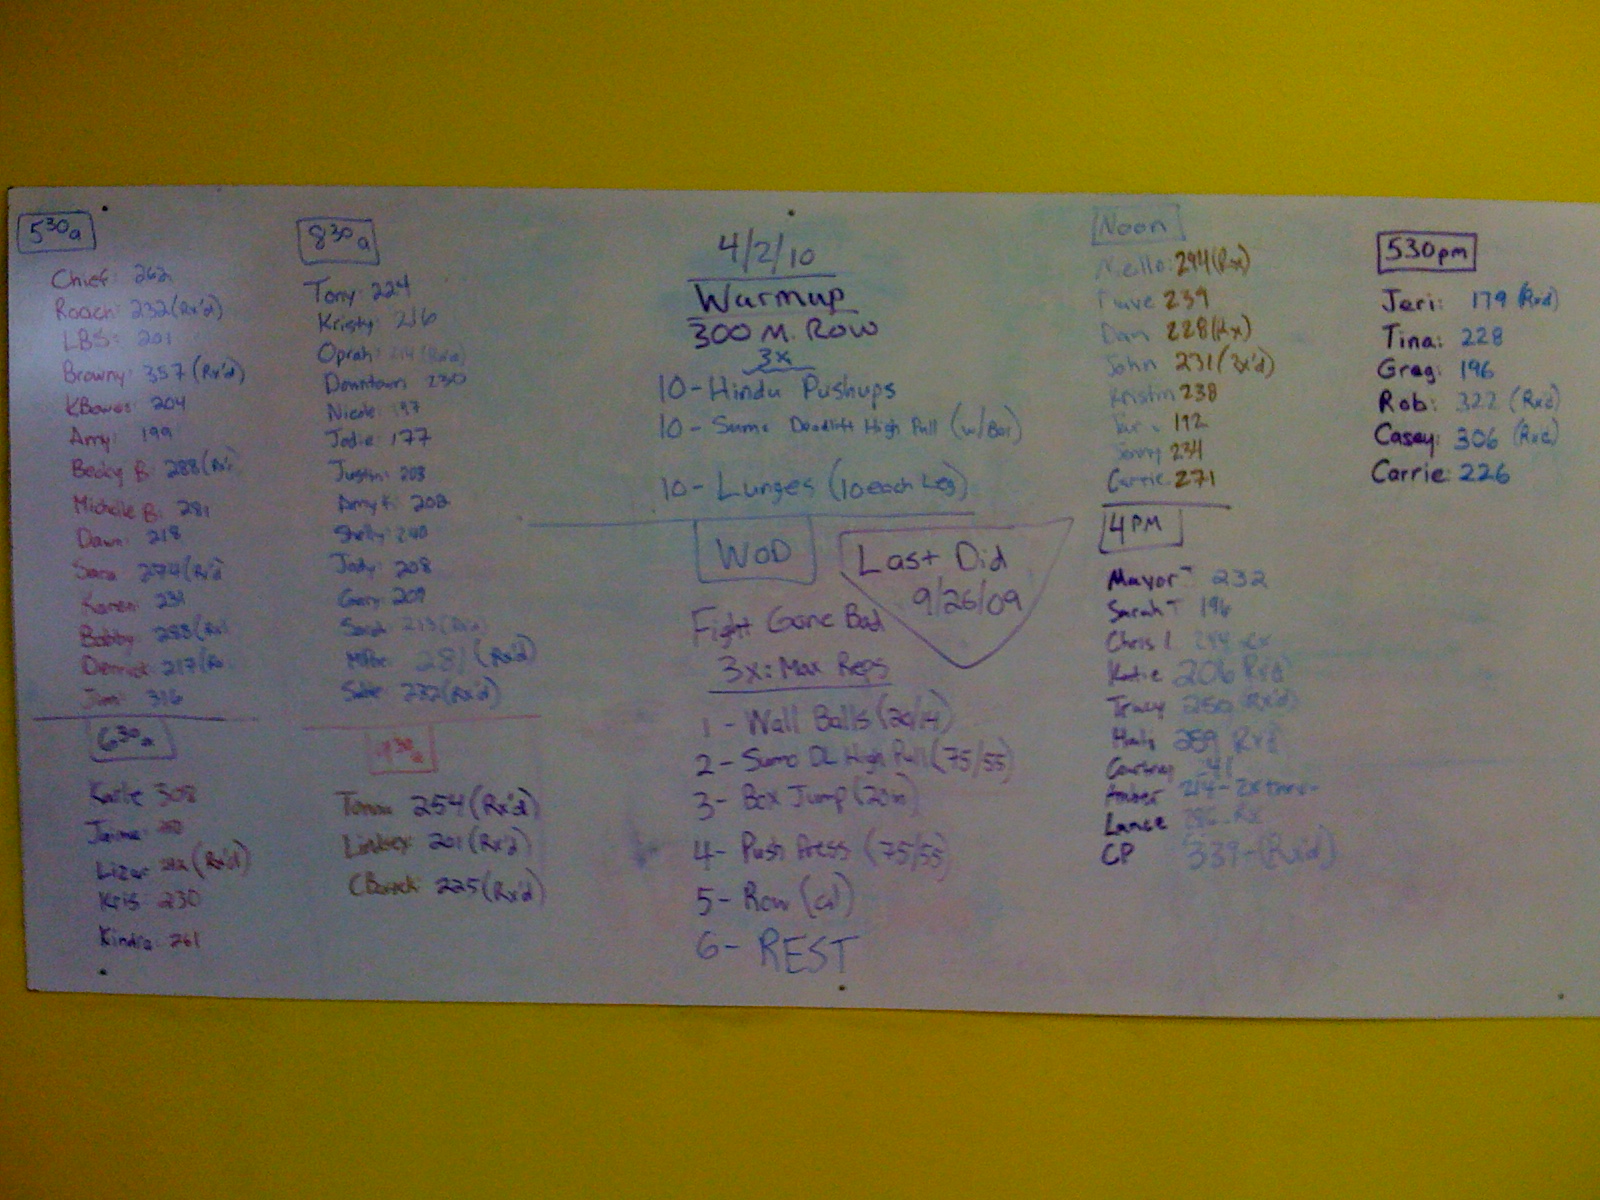 5 30 a
Chief: 262
Roach: 232 (Rx'd)
LBS: 201
Browny: 357 (Rx'd)
KBowes: 204
Amy: 199
Becky B: 288 (Rx'
Michelle B: 281
Dawn: 218
Sara 274 (Rx'd
Karen:
Bobby
Derrick: 217 (Rx
Jim: 316
6 30 a
Katie 308
Jaime
(Rx'd)
Kris 230
Kindra 261
8 30 a
Tony: 224
Kristy: 216
Oprah:
Downtown 230
Nicole 197
Jodie: 177
Justin: 203
Amy F: 202
Shelly: 240
Jody: 208
Gary: 209
Sarah 213
Mike: 281 (Rx'd)
232 (Rx'd)
30 a
254 (Rx'd)
Lindsey 201 (Rx'd)
225 (Rx'd)
4/2/10
Warmup
300 M. Row
3x
10 - Hindu Pushups
10 - Sumo Deadlift High Pull (w/Bar)
10 - Lunges (10 each Leg)
WOD
Last Did
9/26/09
Fight Gone Bad
3x: Max Reps
1 - Wall Balls (20/14)
2 - Sumo DL High Pull (75/55)
3 - Box Jump (20in)
4 - Push Press (75/55)
5 - Row (cal)
6 - REST
Noon
Mello: 294 (Rx)
239
Dan 228 (Rx)
John 231 (Rx'd)
Kristin 238
192
Jenny 234
Carrie: 271
4PM
Mayor 232
Sarah T 196
Chris L 244 - Rx
Katie 206 Rx'd
Tracy 250 (Rx'd)
259 Rx'd
Courtney
Amber 214 -
Lance Rx
CP 339 - (Rx'd)
530pm
Jeri: 179 (Rx'd)
Tina: 228
Greg: 196
Rob: 322 (Rx'd)
Casey: 306 (Rx'd)
Carrie: 226